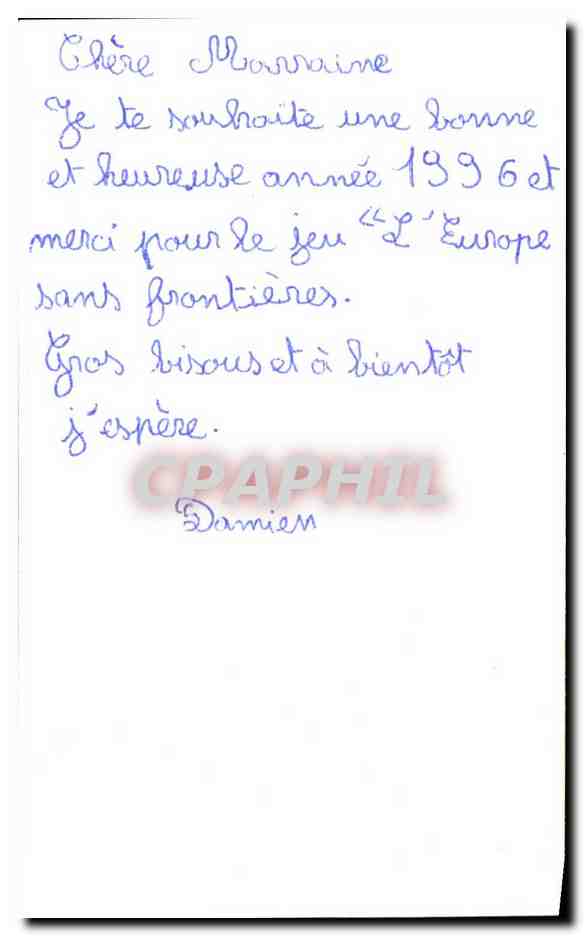 Chère Marraine
Je te souhaite une bonne
et heureuse année 1996 et
merci pour le jeu "L'Europe
sans frontières.
Gros bisous et à bientôt
j'espère.
CPAPHIL
Damien